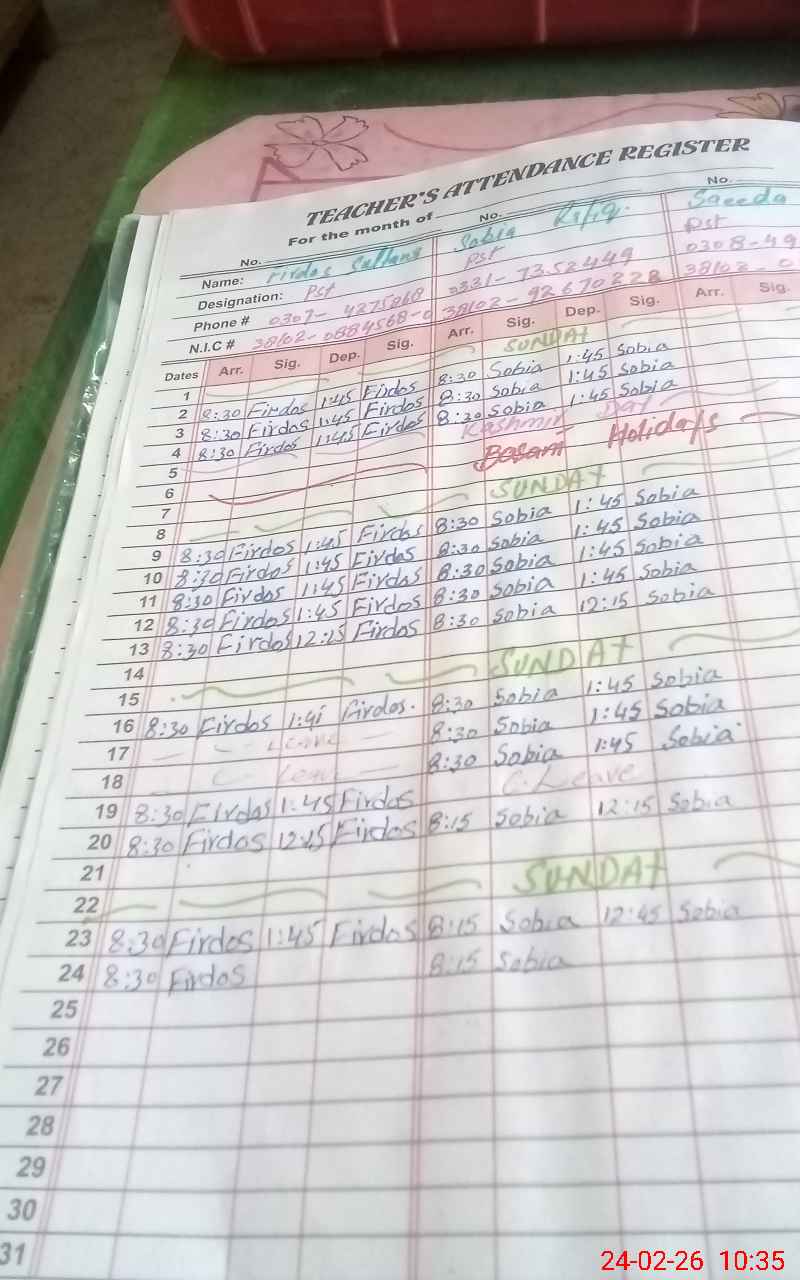 TEACHER'S ATTENDANCE REGISTER
For the month of
No. No. No.
Name: Firdos Sultana Sobia Rafiq. Saeeda
Designation: Pst Pst Pst
Phone # 0307- 4275268 0331- 7352449 0308-49
N.I.C # 38102-0884568-0 38102-92670228 38102-0
Dates Arr. Sig. Dep. Sig. Arr. Sig. Dep. Sig. Arr. Sig.
1 SUNDAY
2 8:30 Firdos 1:45 Firdos 8:30 Sobia 1:45 Sobia
3 8:30 Firdos 1:45 Firdos 8:30 Sobia 1:45 Sobia
4 8:30 Firdos 1:45 Firdos 8:30 Sobia 1:45 Sobia
5 Kashmir Day
6 Basant Holidays
7
8 SUNDAY
9 8:30 Firdos 1:45 Firdos 8:30 Sobia 1:45 Sobia
10 8:30 Firdos 1:45 Firdos 8:30 Sobia 1:45 Sobia
11 8:30 Firdos 1:45 Firdos 8:30 Sobia 1:45 Sobia
12 8:30 Firdos 1:45 Firdos 8:30 Sobia 1:45 Sobia
13 8:30 Firdos 12:15 Firdos 8:30 Sobia 12:15 Sobia
14
15 SUNDAY
16 8:30 Firdos 1:45 Firdos. 8:30 Sobia 1:45 Sobia
17 C- Leave 8:30 Sobia 1:45 Sobia
18 C- Leave 8:30 Sobia 1:45 Sobia
19 8:30 Firdos 1:45 Firdos C. Leave
20 8:30 Firdos 12:15 Firdos 8:15 Sobia 12:15 Sobia
21
22 SUNDAY
23 8:30 Firdos 1:45 Firdos 8:15 Sobia 12:45 Sobia
24 8:30 Firdos 8:15 Sobia
25
26
27
28
29
30
31
24-02-26 10:35